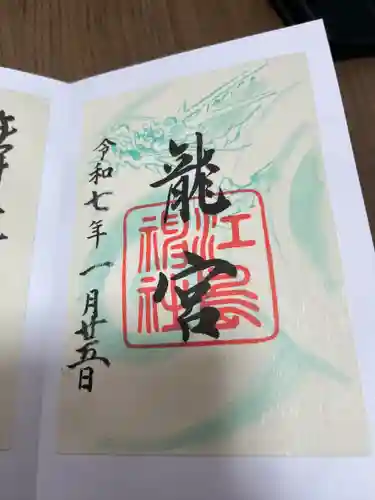 龍宮
江島神社
令和七年一月廿五日